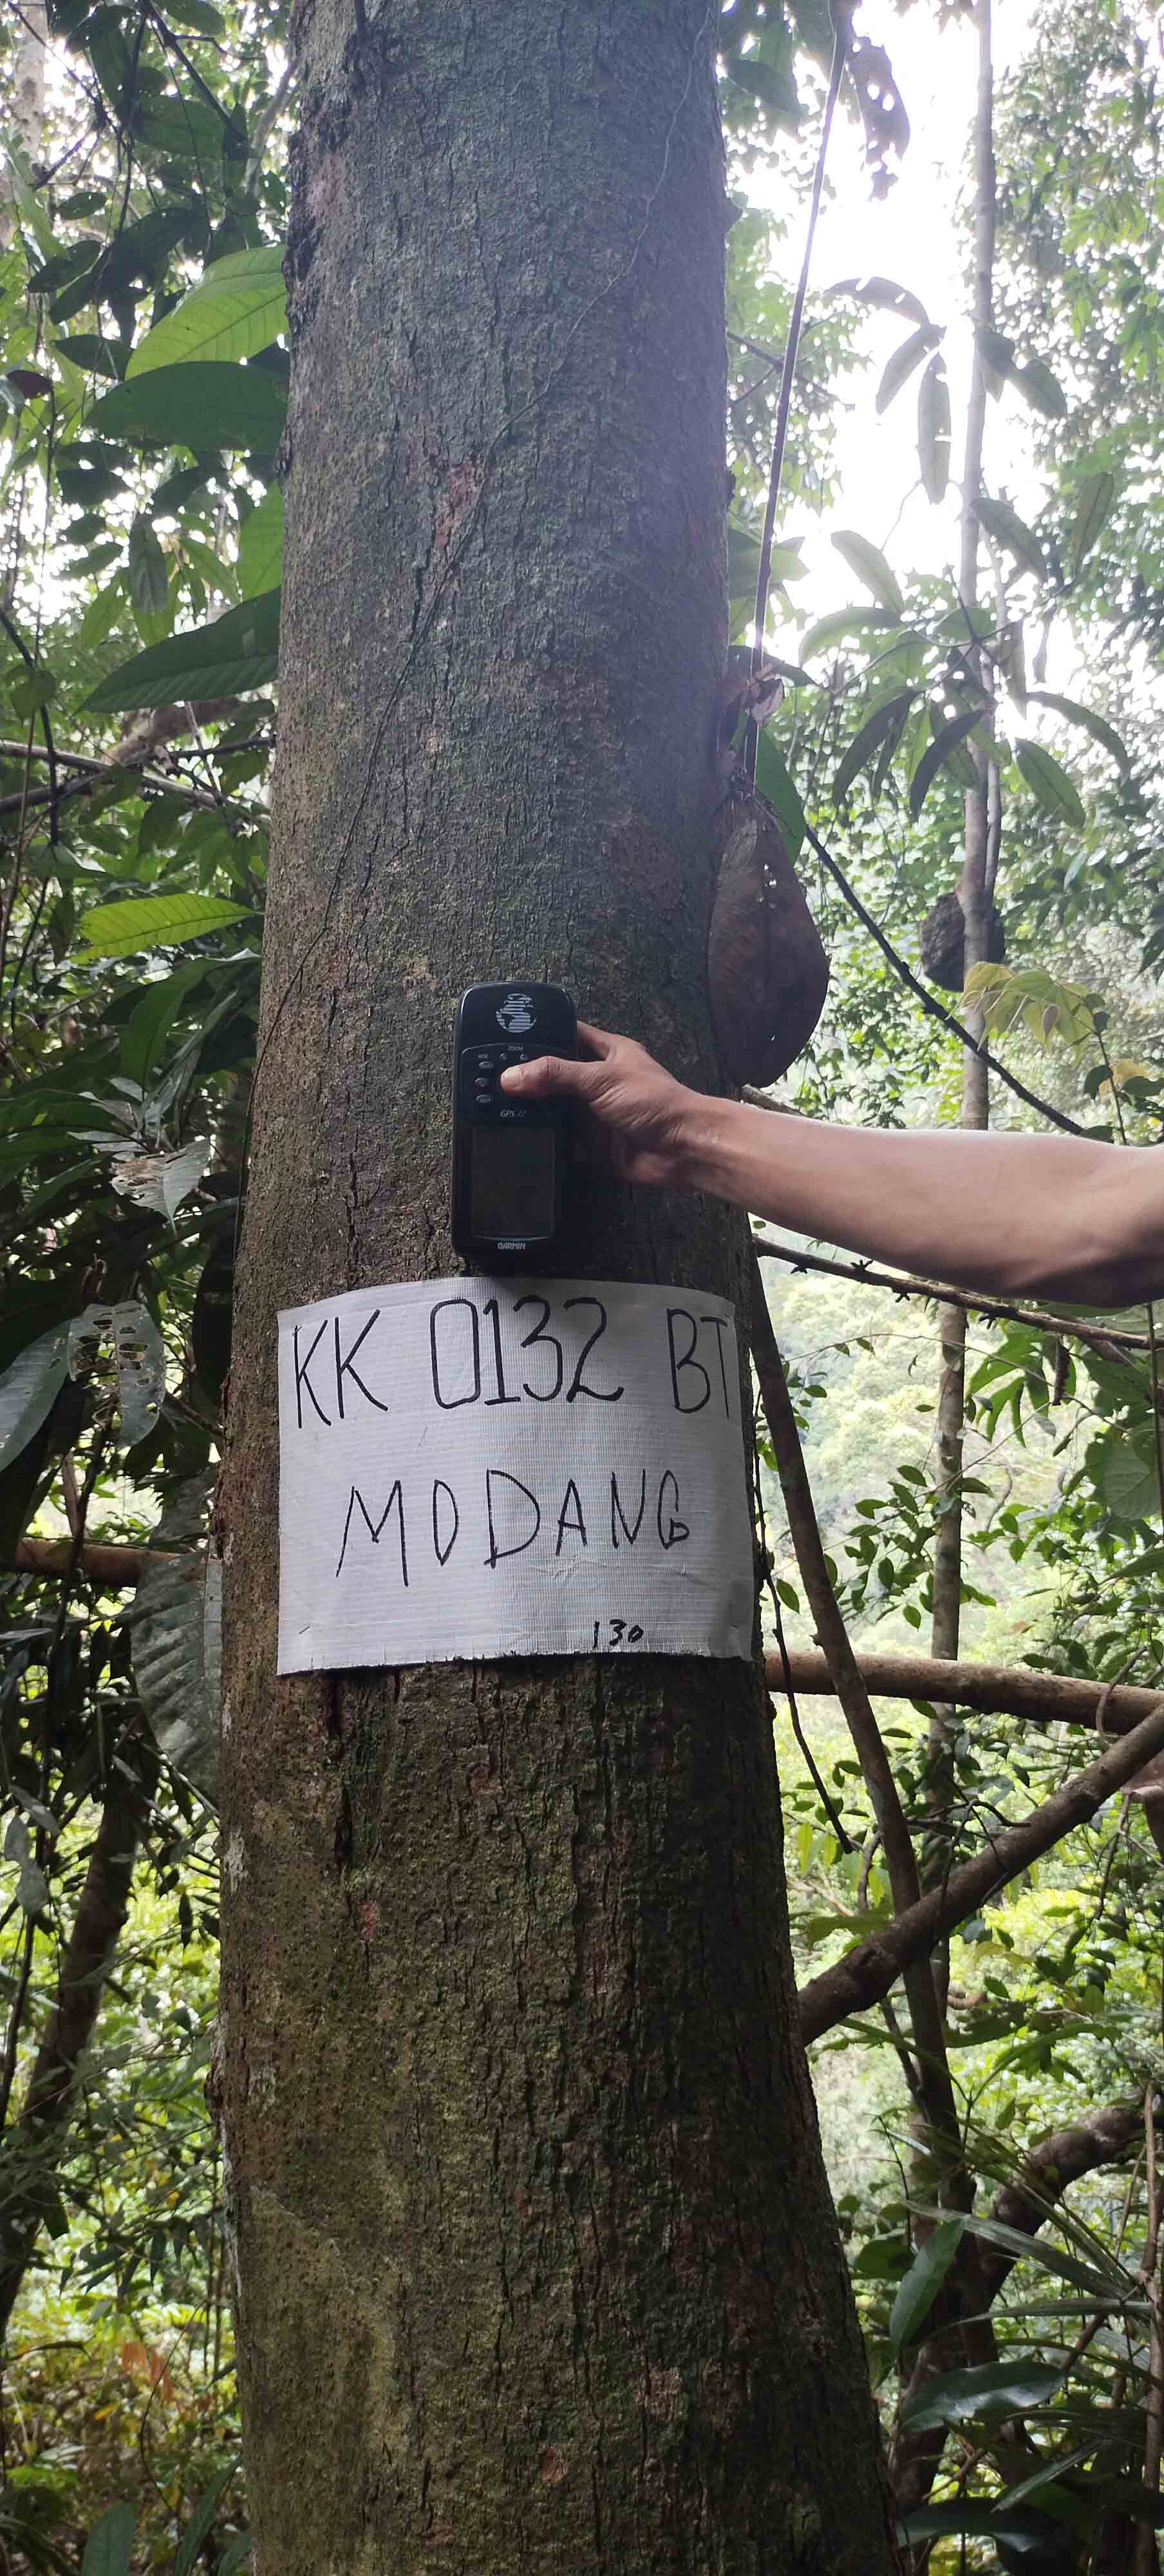 ZOOM
GARMIN
KK 0132 BT
MODANG
130